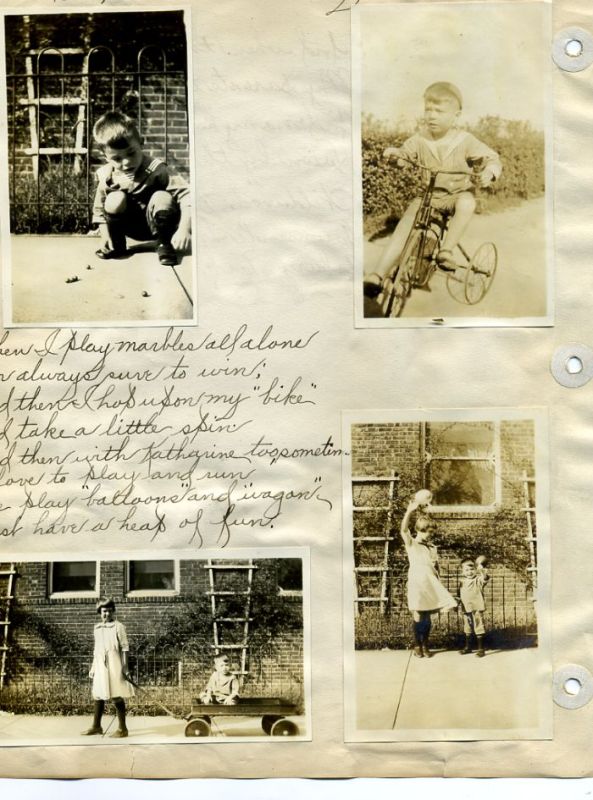 hen I play marbles all alone
m always sure to win;
d then I hop upon my "bike"
d take a little spin.
d then with Katharine too, sometim
love to play and run,
e play "balloons" and "wagon",
st have a heap of fun.